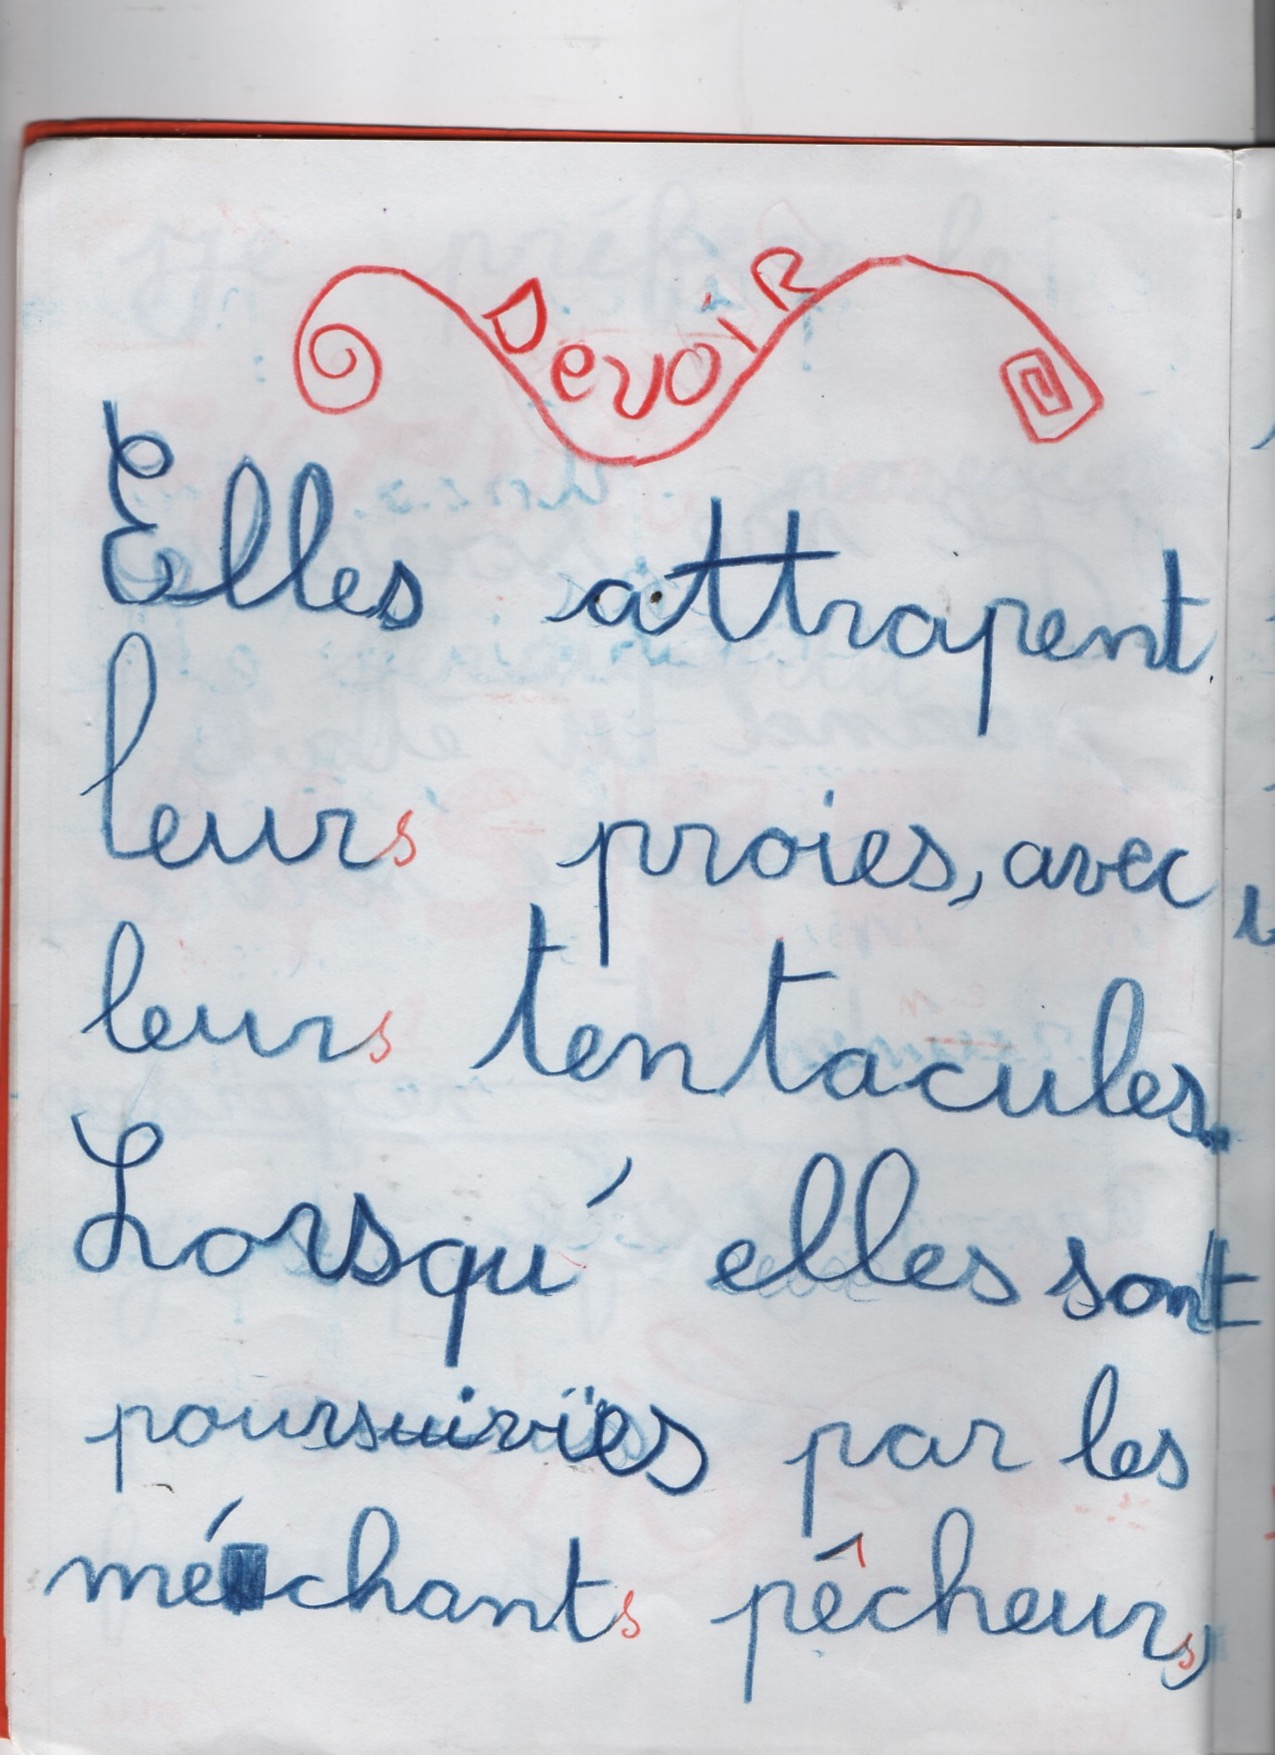 DevoiR
Elles attrapent
leurs proies, avec
leurs tentacules.
Lorsqu' elles sont
poursuivies par les
méchants pêcheurs,